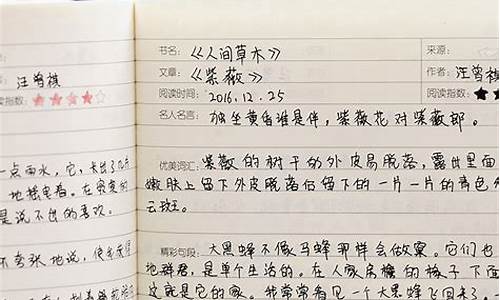 汪曾祺
阅读指数：
一点雨水，它，长出了几片
地摇曳着。在寂寞的
是说不出的喜欢。
不夸张地说，使我觉得
书名：《人间草木》 来源：
文章：《紫薇》 作者：汪曾祺
阅读时间：2016.12.25 阅读指数：
名人名言：独坐黄昏谁是伴，紫薇花对紫薇郎。
优美词汇：紫薇的树干的外皮易脱落，露出里面
嫩肤上留下外皮脱落后留下的一片一片的青色
云斑。
精彩句段：大黑蜂不像马蜂那样会做窠。它们也
地群居，是单个生活的。在人家房檐的椽子下面
这就是它的家。我常常看见一个大黑蜂飞回来了